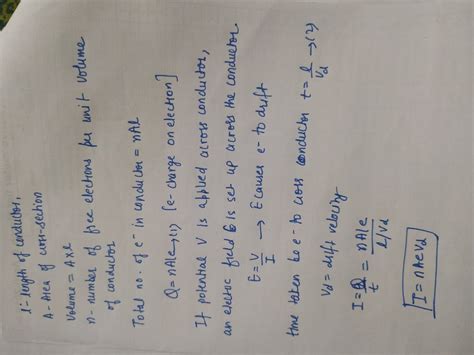 l - length of conductor,
A - Area of cross-section
Volume = A x l
n - number of free electrons per unit volume
of conductor
Total no. of e⁻ in conductor = nAl
Q = nAle → (1) [e - charge on electron]
If potential V is applied across conductor,
an electric field E is set up across the conductor
E = V/l → E causes e⁻ to drift
time taken by e⁻ to cross conductor t = l/Vd → (2)
Vd = drift velocity
I = Q/t = nAle / L/Vd
I = nAeVd